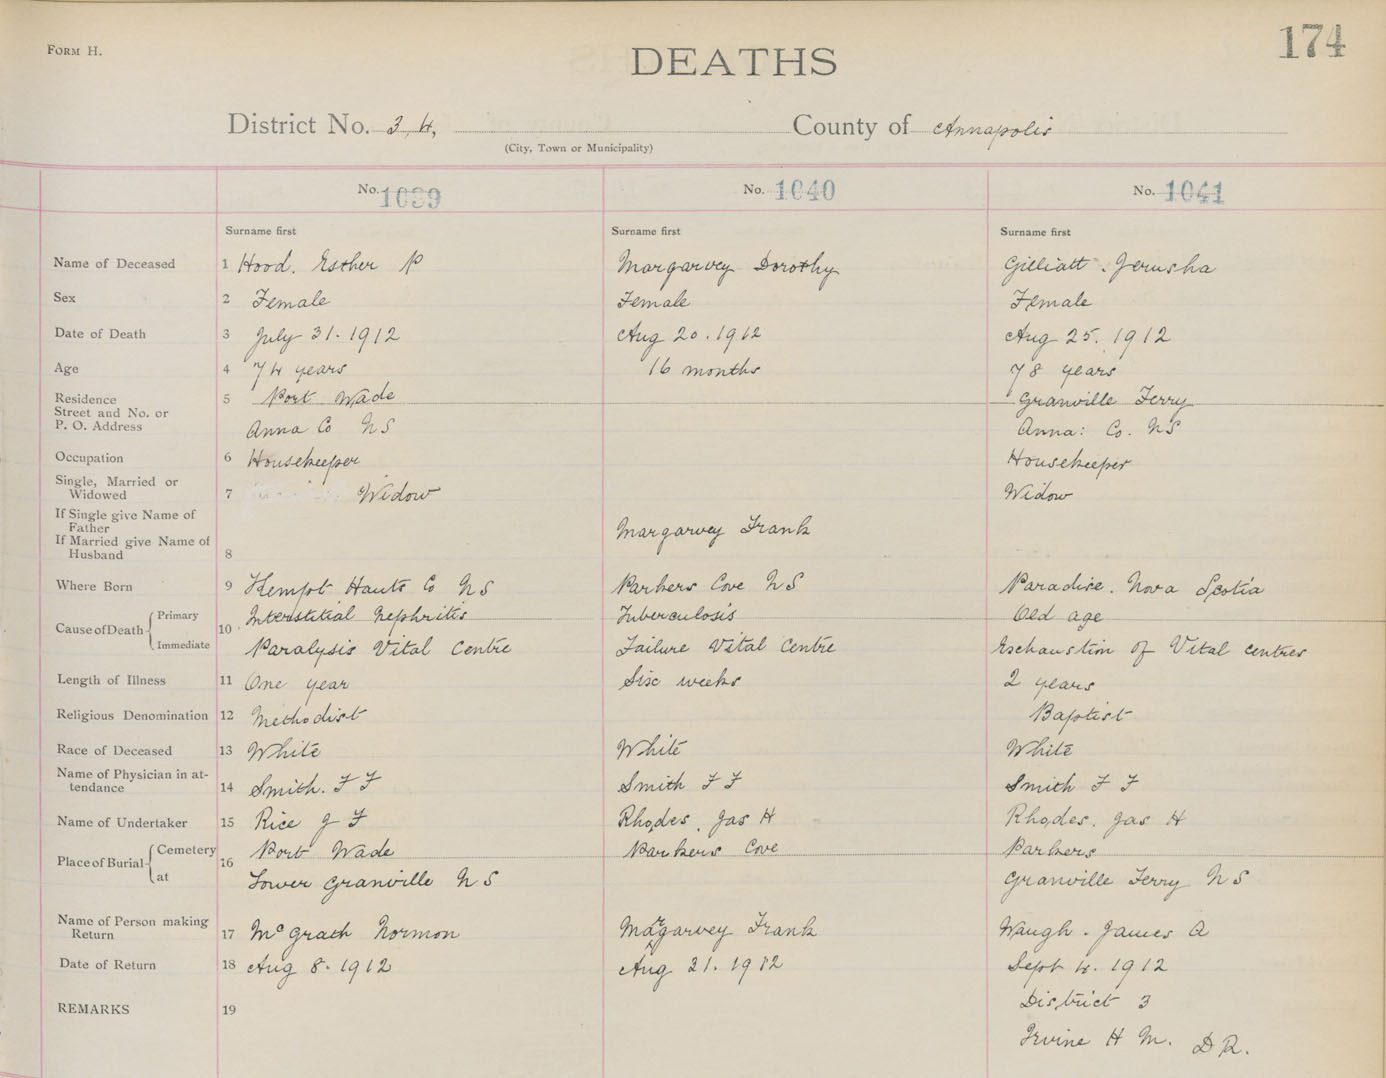 FORM H.
174
DEATHS
District No. 3, 4, County of Annapolis
(City, Town or Municipality)
No. 1039 No. 1040 No. 1041
Surname first Surname first Surname first
Name of Deceased 1 Hood. Esther P Margarvey Dorothy Gilliatt. Jerusha
Sex 2 Female Female Female
Date of Death 3 July 31. 1912 Aug 20. 1912 Aug 25. 1912
Age 4 74 years 16 months 78 years
Residence 5 Port Wade Granville Ferry
Street and No. or
P. O. Address Anna Co NS Anna: Co. NS
Occupation 6 Housekeeper Housekeeper
Single, Married or
Widowed 7 Widow Widow
If Single give Name of
Father Margarvey Frank
If Married give Name of
Husband 8
Where Born 9 Kempt Hants Co NS Parkers Cove NS Paradise. Nova Scotia
Cause of Death Primary 10 Interstitial Nephritis Tuberculosis Old age
Immediate Paralysis Vital Centre Failure Vital Centre Exhaustion of Vital centres
Length of Illness 11 One year Six weeks 2 years
Religious Denomination 12 Methodist Baptist
Race of Deceased 13 White White White
Name of Physician in at-
tendance 14 Smith. F F Smith F F Smith F F
Name of Undertaker 15 Rice J F Rhodes. Jas H Rhodes. Jas H
Place of Burial Cemetery 16 Port Wade Parkers Cove Parkers
at Lower Granville NS Granville Ferry NS
Name of Person making
Return 17 McGrath Normon Margarvey Frank Waugh. James A
Date of Return 18 Aug 8. 1912 Aug 21. 1912 Sept 4. 1912
REMARKS 19 District 3
Irvine H M. D R.